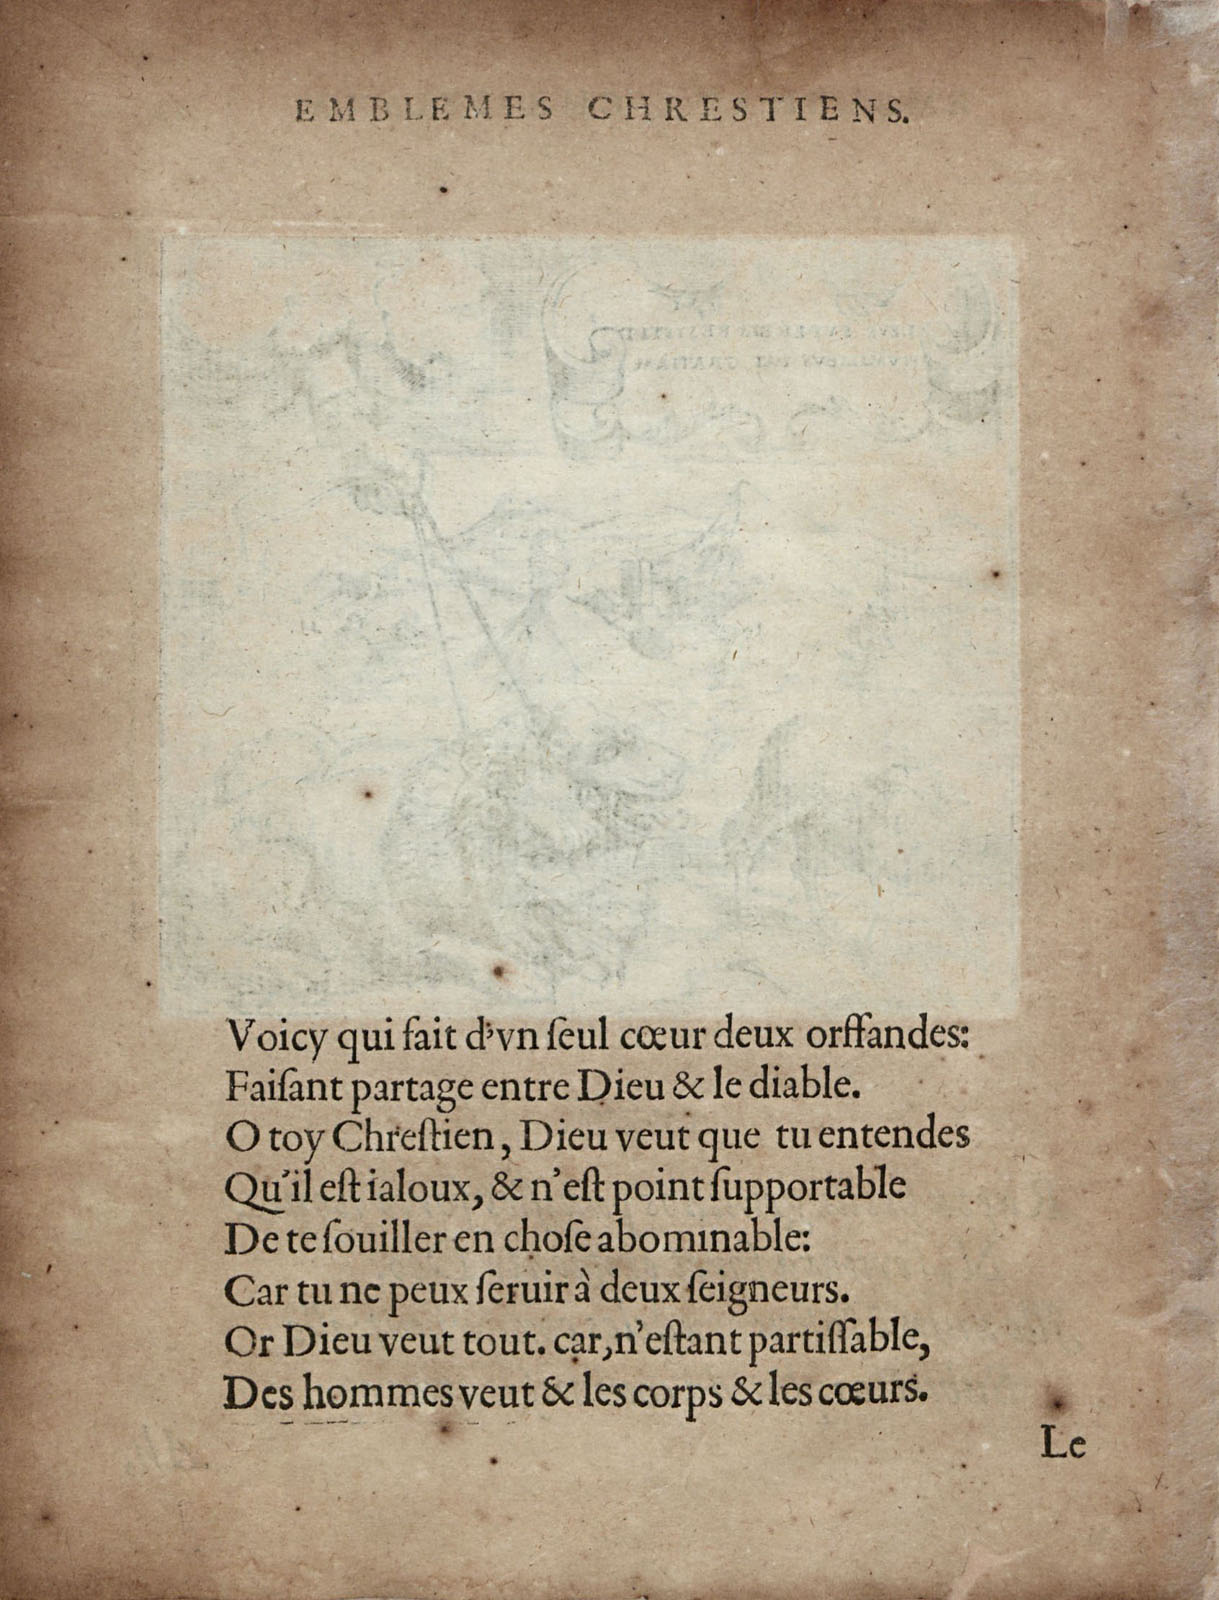 EMBLEMES CHRESTIENS.
Voicy qui fait d'vn ſeul cœur deux orffandes:
Faiſant partage entre Dieu & le diable.
O toy Chreſtien, Dieu veut que tu entendes
Qu'il eſt ialoux, & n'eſt point ſupportable
De te ſouiller en choſe abominable:
Car tu ne peux ſeruir à deux ſeigneurs.
Or Dieu veut tout. car, n'eſtant partiſſable,
Des hommes veut & les corps & les cœurs.
Le